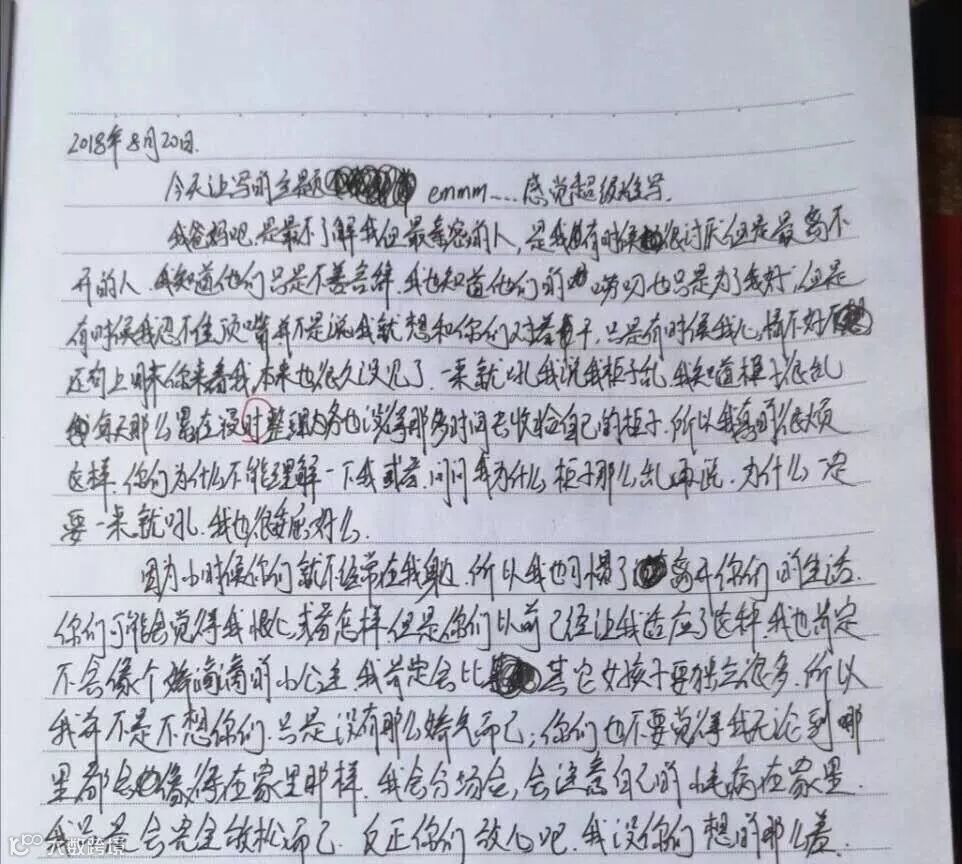 2018年8月20日.
今天让写的主题 emmm.... 感觉超级难写.
我爸妈吧.是最不了解我但最亲密的人,是我有时候很讨厌但是最离不
开的人.我知道他们只是不善言辞.我也知道他们的唠叨也只是为了我好,但是
有时候我忍不住顶嘴并不是说我就想和你们对着干,只是有时候我心情不好
还有上周末你来看我,本来也很久没见了.一来就吼我说我柜子乱,我知道柜子很乱
每天那么累在没时整理内务也没得那多时间去收拾自己的柜子.所以我真的很烦
这样.你们为什么不能理解一下我或者问问我为什么柜子那么乱再说.为什么一定
要一来就吼.我也很委屈好么.
因为小时候你们就不经常在我身边.所以我也习惯了离开你们的生活.
你们可能会觉得我恨你们或者怎样.但是你们以前已经让我适应了这种.我也肯定
不会像个娇滴滴的小公主.我肯定会比其它女孩子要独立很多.所以
我并不是不想你们.只是没有那么娇气而已;你们也不要觉得我无论到哪
里都会像得在家里那样.我会分场合,会注意自己的小毛病在家里.
我只是会完全放松而已.反正你们放心吧.我没你们想的那么差.
大数跨境